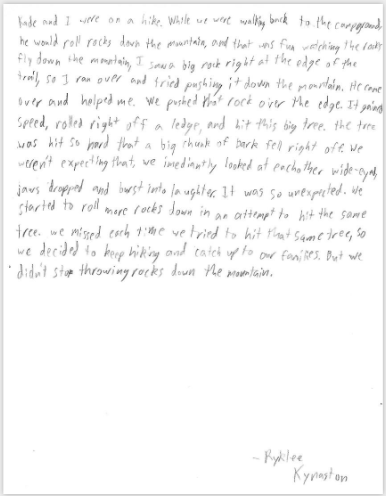 Kade and I were on a hike. While we were walking back to the campground,
he would roll rocks down the mountain, and that was fun watching the rocks
fly down the mountain, I saw a big rock right at the edge of the
trail, so I ran over and tried pushing it down the mountain. He came
over and helped me. We pushed that rock over the edge. It gained
speed, rolled right off a ledge, and hit this big tree. the tree
was hit so hard that a big chunk of bark fell right off. we
weren't expecting that, we imediantly looked at eachother wide-eyed,
jaws dropped and burst into laughter. It was so unexpected. We
started to roll more rocks down in an attempt to hit the same
tree. we missed each time we tried to hit that same tree, so
we decided to keep hiking and catch up to our families. But we
didn't stop throwing rocks down the mountain.
~ Ryklee
Kynaston